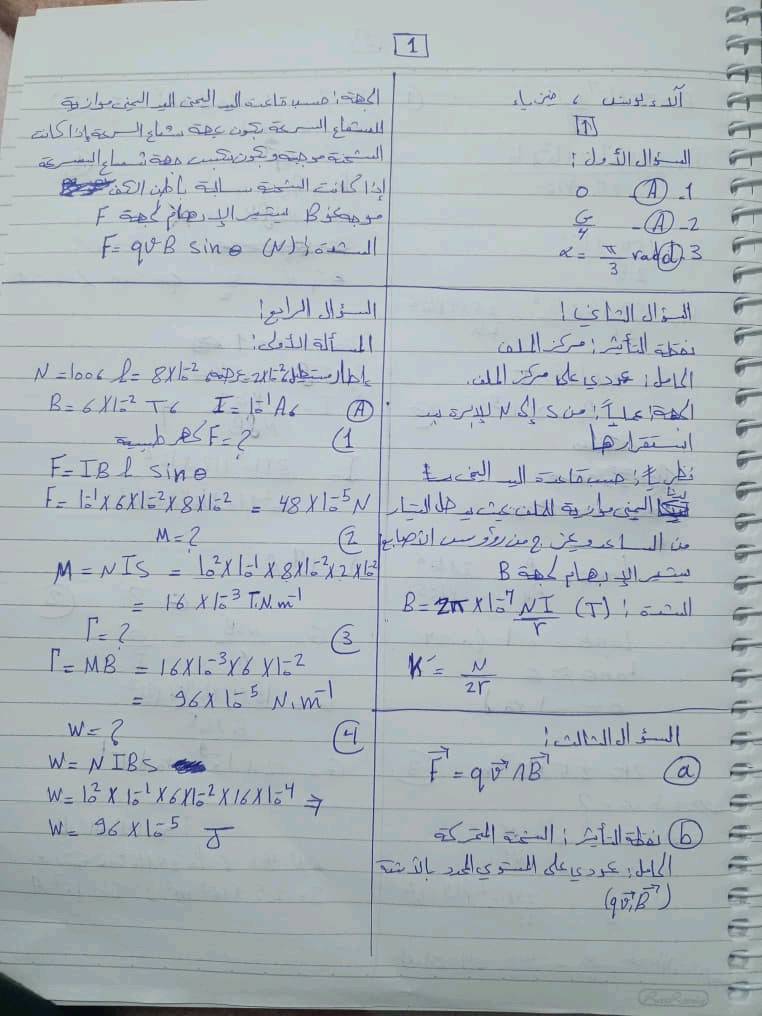 1
آلاء يونس ، فيزياء
1
السؤال الأول :
1- A 0
2- A G/4
3. d α = π/3 rad
السؤال الثاني :
نقطة التأثير : مركز الملف
الحامل : عمودي على مركز الملف.
الجهة : عملياً : من S إلى N لإبرة بعد
استقرارها
نظرياً : حسب قاعدة اليد اليمنى
اليمنى موازية للملف بحيث يدخل التيار
من الساعد ويخرج من رؤوس الأصابع
يشير الإبهام لجهة B
الشدة : B = 2π × 10⁻⁷ NI/r (T)
K' = N/2r
السؤال الثالث :
a F⃗ = q v⃗ ∧ B⃗
b نقطة التأثير : الشحنة المتحركة
الحامل : عمودي على المستوي المحدد بالأشعة
(q v⃗, B⃗)
الجهة : حسب قاعدة اليد اليمنى اليد اليمنى موازية
لشعاع السرعة تكون بجهة شعاع السرعة إذا كانت
الشحنة موجبة وتكون بعكس جهة شعاع السرعة
إذا كانت الشحنة سالبة باطن الكف
موجه نحو B يشير الإبهام لجهة F
الشدة : F = qvB sin θ (N)
السؤال الرابع :
المسألة الأولى :
إطار مستطيل عرضه 2×10⁻² ، L = 8×10⁻² ، N = 100
A B = 6×10⁻² T ، I = 10⁻¹ A
1) F = ? كهرطيسية
F = I B L sin θ
F = 10⁻¹ × 6×10⁻² × 8×10⁻² = 48×10⁻⁵ N
2 M = ?
M = N I S = 10² × 10⁻¹ × 8×10⁻² × 2×10⁻²
= 16 × 10⁻³ T.N.m⁻¹
3 Γ = ?
Γ = MB = 16×10⁻³ × 6×10⁻²
= 96 × 10⁻⁵ N.m⁻¹
4 W = ?
W = N I B S
W = 10² × 10⁻¹ × 6×10⁻² × 16×10⁻⁴ ⇒
W = 96 × 10⁻⁵ J